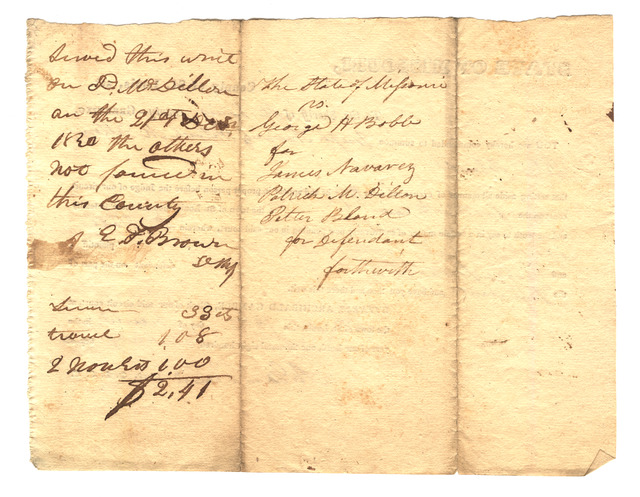 Served this writ
on P. M. Dillon
on the 21st Dec.
1830 the others
not found in
this County
E. D. Brown
33 cts
travel 1.08
2 Non Ests 1.00
$2.41
The State of Missouri
vs.
George H Bobb
for
James Navarez
Patrick M. Dillon
Petter Bland
for Defendant
forthwith